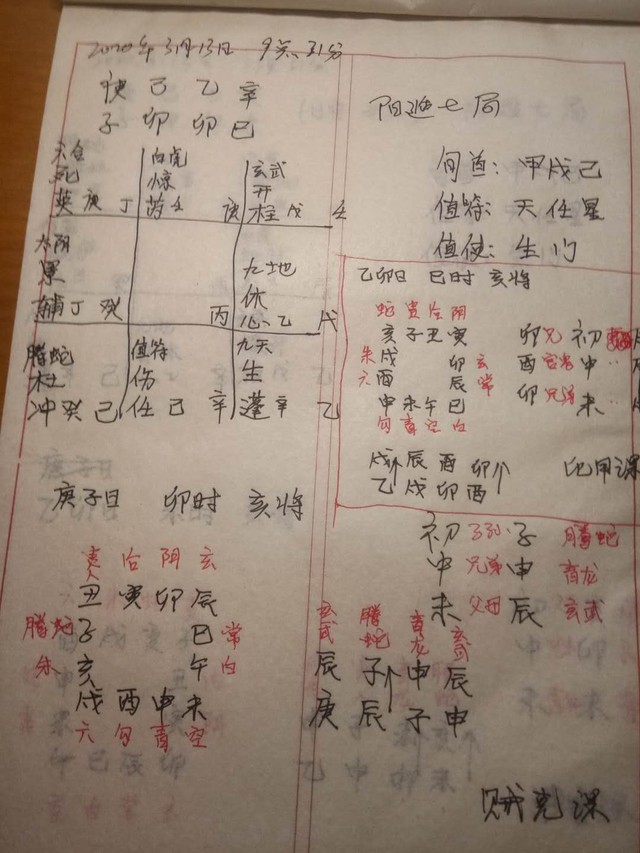 2020年3月13日 9点31分
庚 己 乙 辛
子 卯 卯 巳
阳遁七局
旬首：甲戌己
值符：天任星
值使：生门
六合 白虎 玄武
死 惊 开
英 庚 丁 芮 壬 庚 柱 戊 壬
太阴 九地
景 休
辅 丁 癸 丙 心 乙 戊
腾蛇 值符 九天
杜 伤 生
冲 癸 己 任 己 辛 蓬 辛 乙
乙卯日 巳时 亥将
蛇 贵 后 阴
亥 子 丑 寅 卯 兄 初
朱 戌 卯 玄 酉 官鬼 中
六 酉 辰 常 卯 兄 末
申 未 午 巳
勾 青 空 白
戌 辰 酉 卯
乙 戌 卯 酉
庚子日
庚子日 卯时 亥将
贵 后 阴 玄
丑 寅 卯 辰
腾蛇 子 巳 常
朱 亥 午 白
戌 酉 申 未
六 勾 青 空
初 子孙 子 腾蛇
中 兄弟 申 青龙
末 父母 辰 玄武
玄武 腾蛇 青龙 玄武
辰 子 申 辰
庚 辰 子 申
贼克课